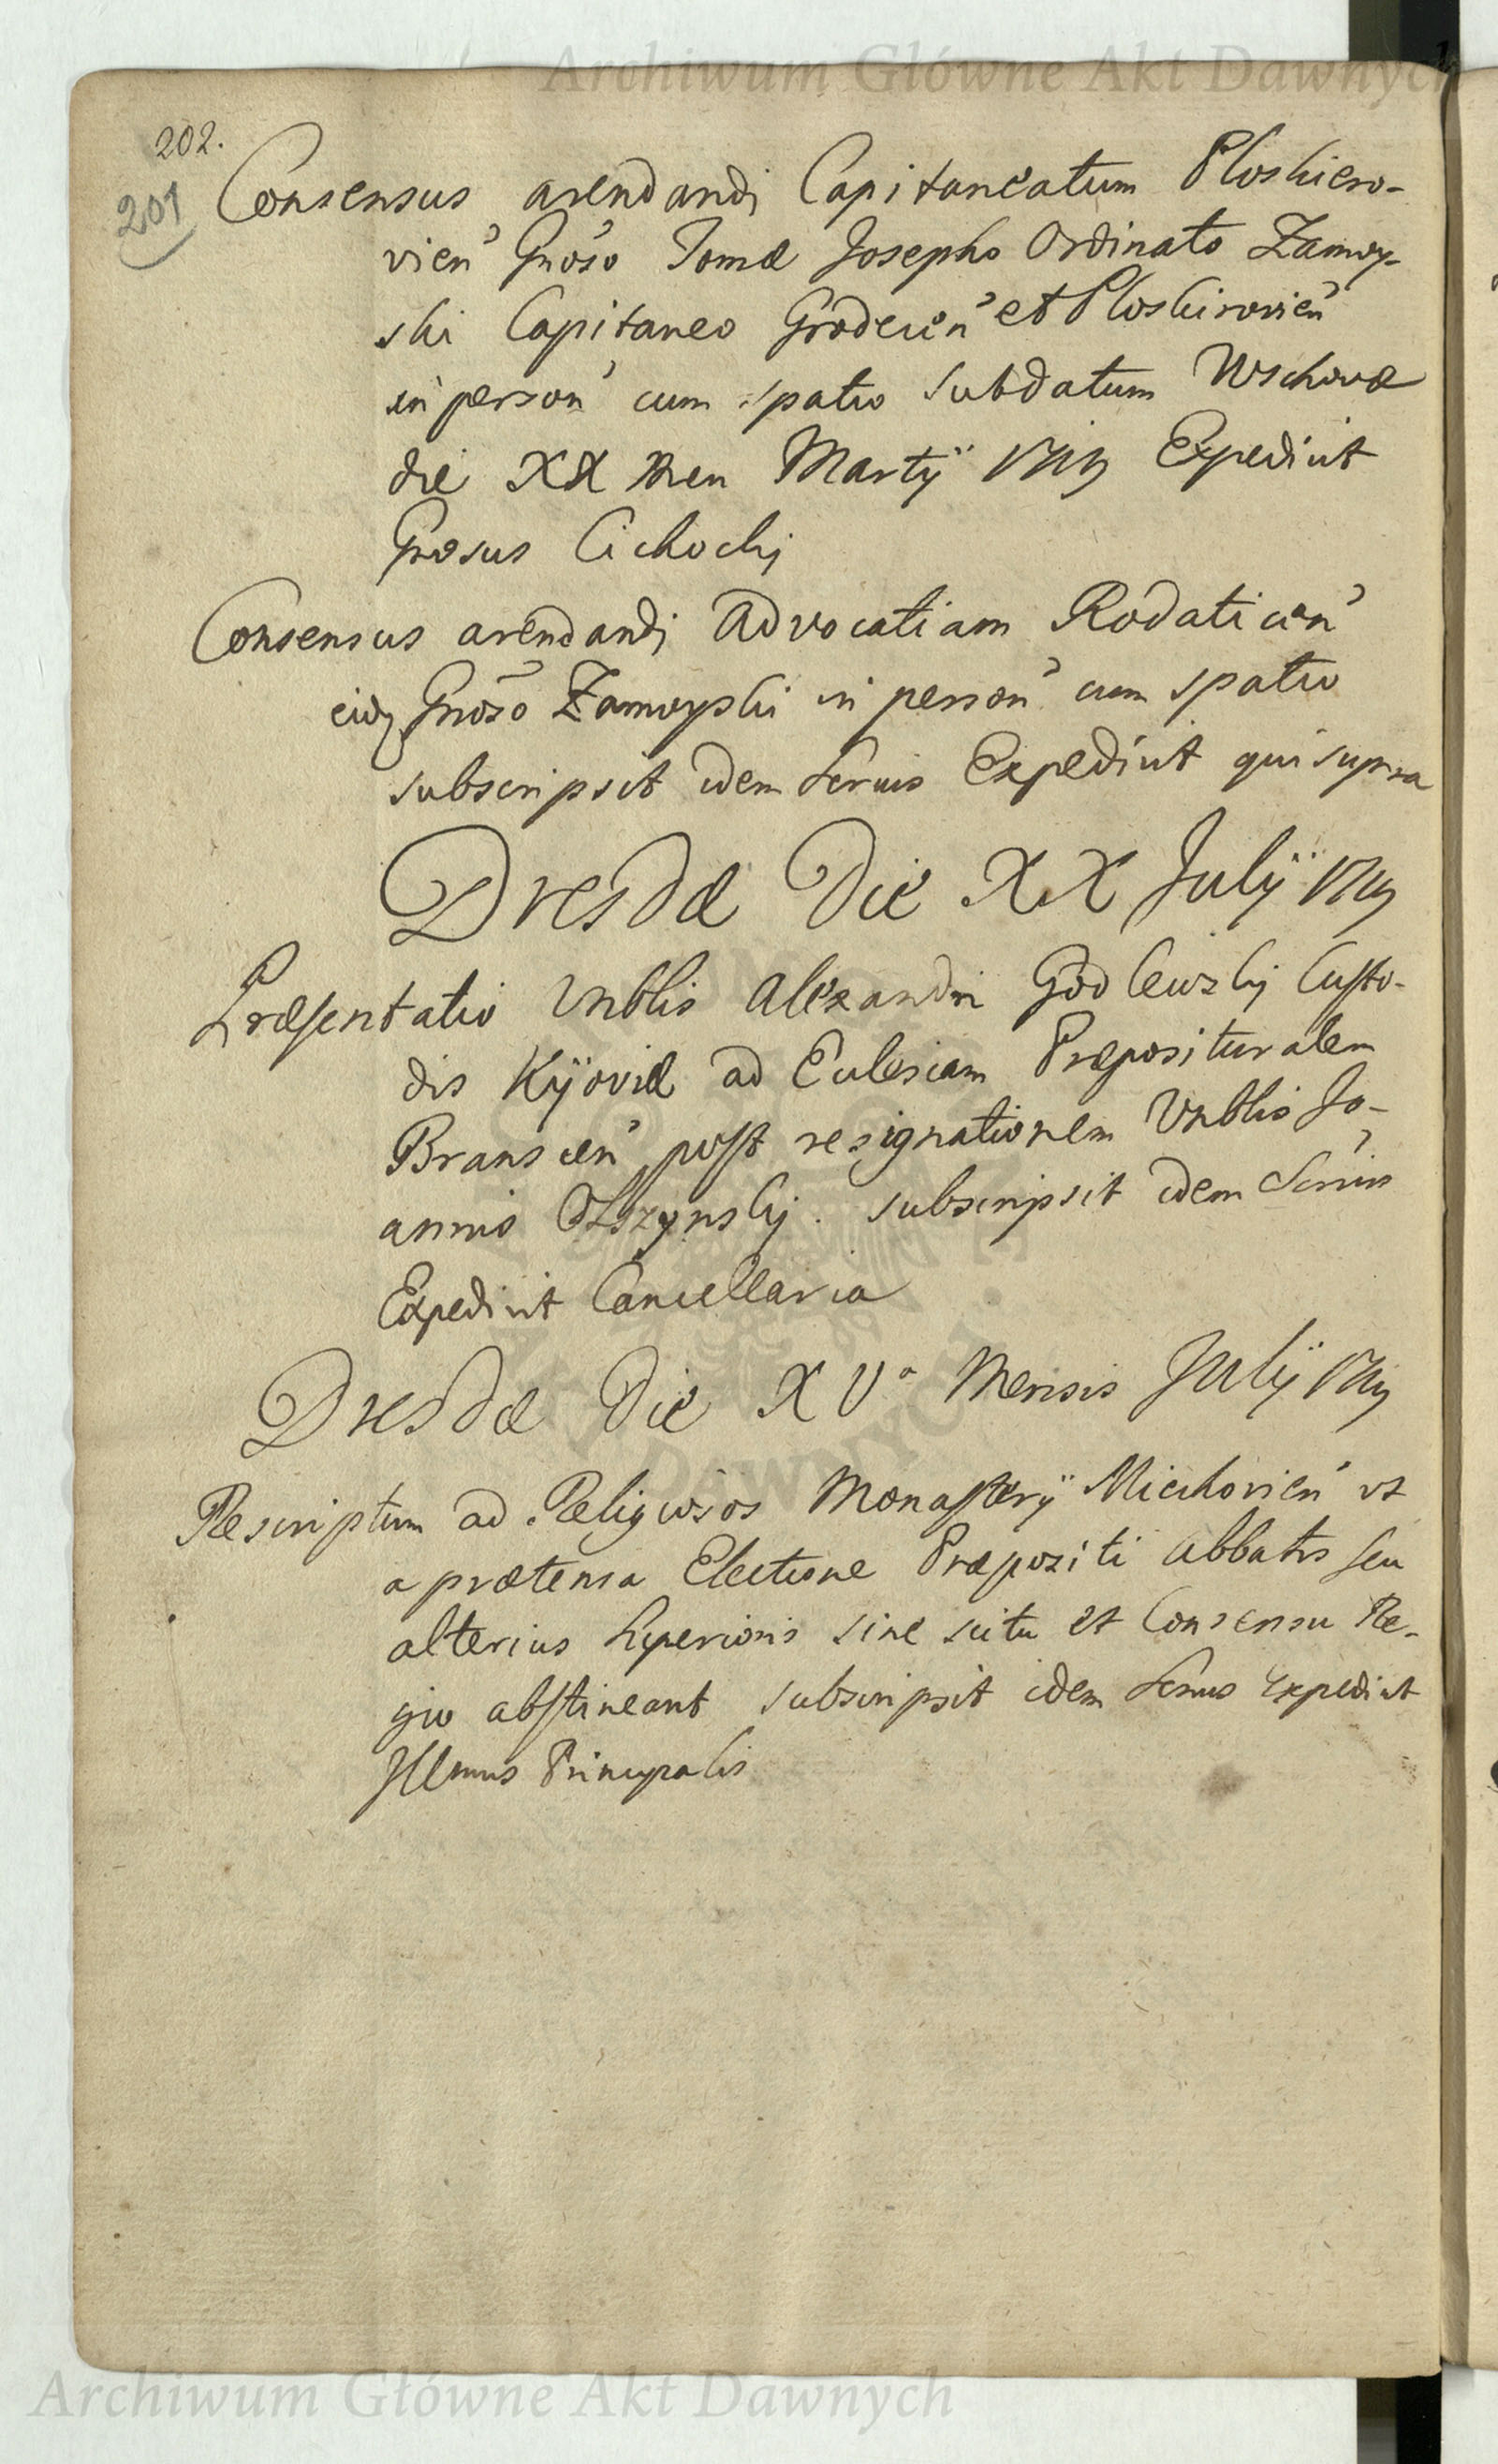 Archiwum Główne Akt Dawnych
202.
201
Consensus arendandi Capitaneatum Ploskiero-
vien Gnoso Tomæ Josepho Ordinato Zamoy-
ski Capitaneo Grodecen et Ploskirovien
in person cum spatio subdatum Wschovæ
die XX Men Martÿ Expedivit
Gnosus Cichocki
Consensus arendandi Advocatiam Rodaticen
Gnoso Zamoyski in person cum spatio
subscripsit idem Sermus Expedivit qui supra
Dresdæ Die XX Julÿ
Præsentatio Vnblis Alexandri Godlewski Custo-
dis Kÿoviæ ad Eclesiam Præposituralem
Branscen post resignationem Vnblis Jo-
annis Olszynski. subscripsit idem Sermus
Expedivit Cancellaria
Dresdæ Die XVa Mensis Julÿ
Rescriptum ad Religiosos Monasterÿ Miechovien vt
a prætensa Electione Præpositi Abbatis seu
alterius Superioris sine scitu et Consensu Re-
gio abstineant subscripsit idem Sermus Expedivit
Jllmus Principalis
Archiwum Główne Akt Dawnych